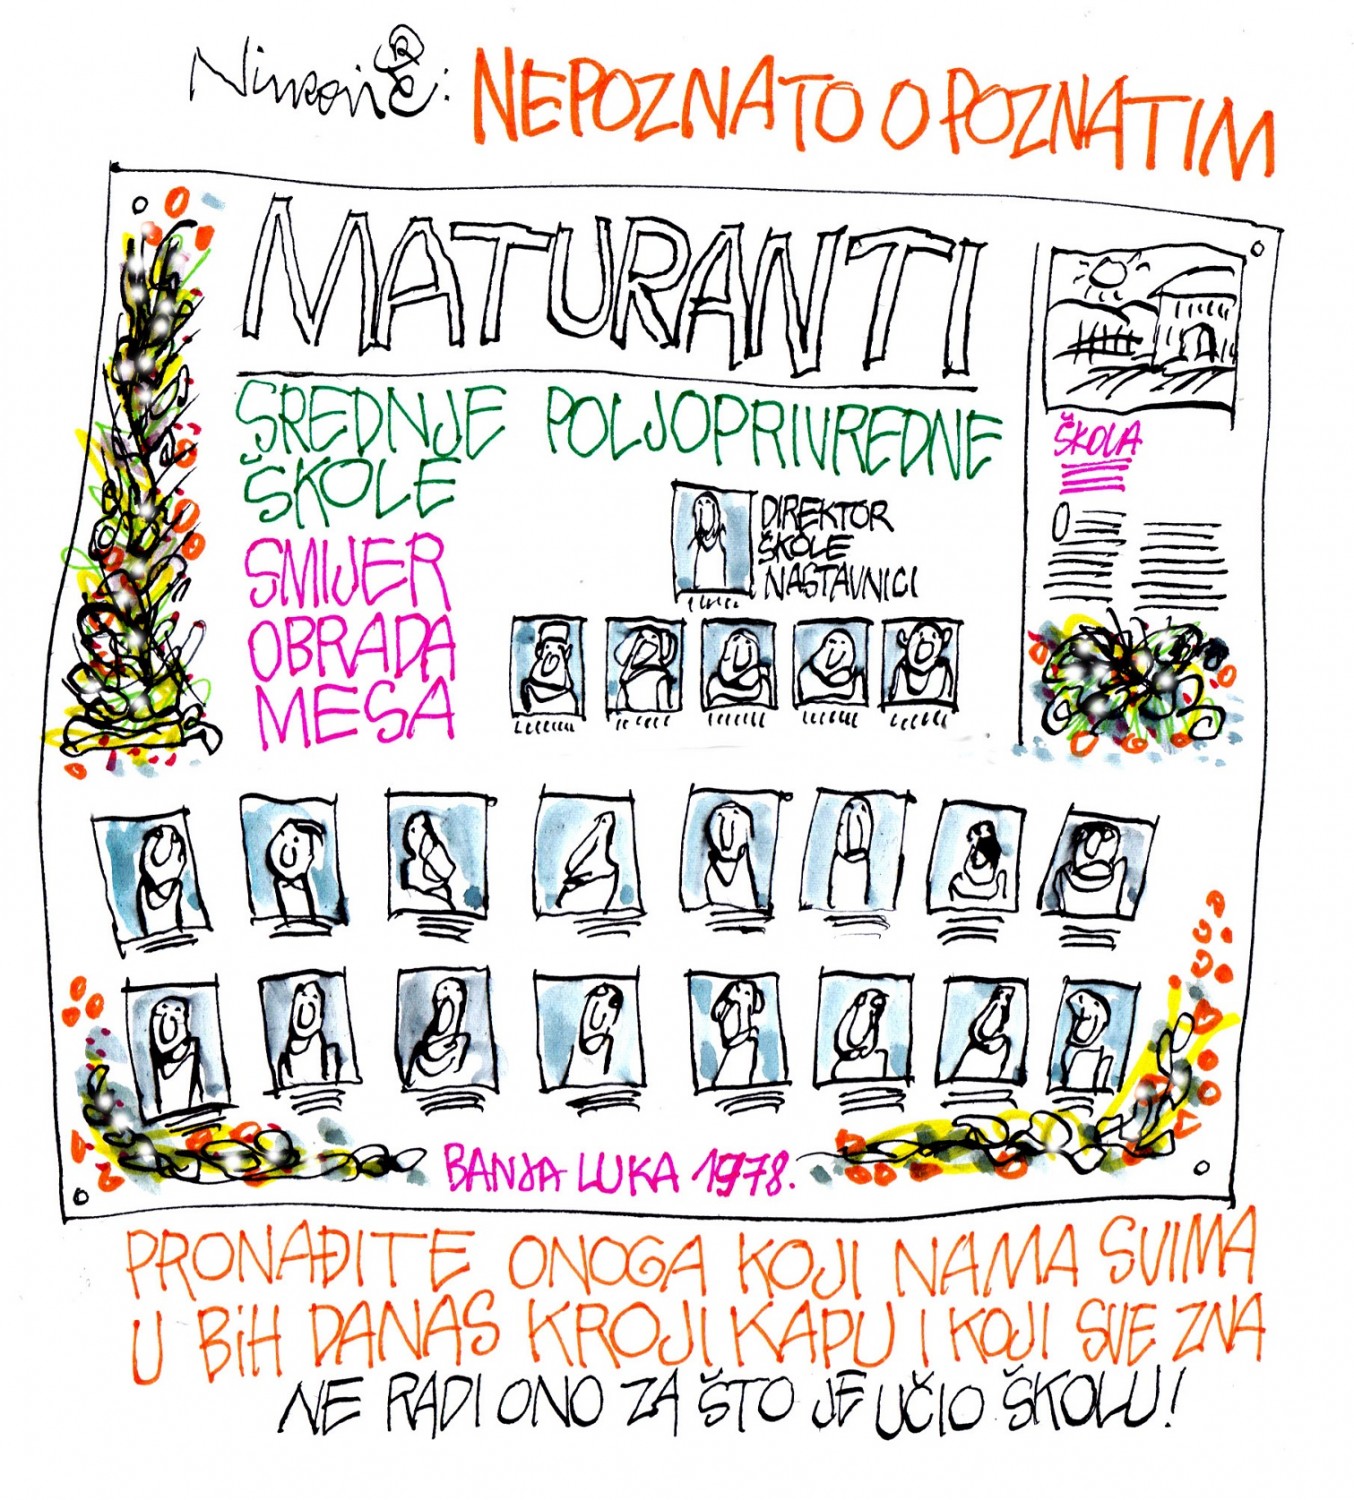 Ninković: NEPOZNATO O POZNATIM
MATURANTI
SREDNJE POLJOPRIVREDNE
ŠKOLE
SMIJER
OBRADA
MESA
DIREKTOR
ŠKOLE
NASTAVNICI
ŠKOLA
BANJA LUKA 1978.
PRONAĐITE ONOGA KOJI NAMA SVIMA
U BiH DANAS KROJI KAPU I KOJI SVE ZNA
NE RADI ONO ZA ŠTO JE UČIO ŠKOLU!